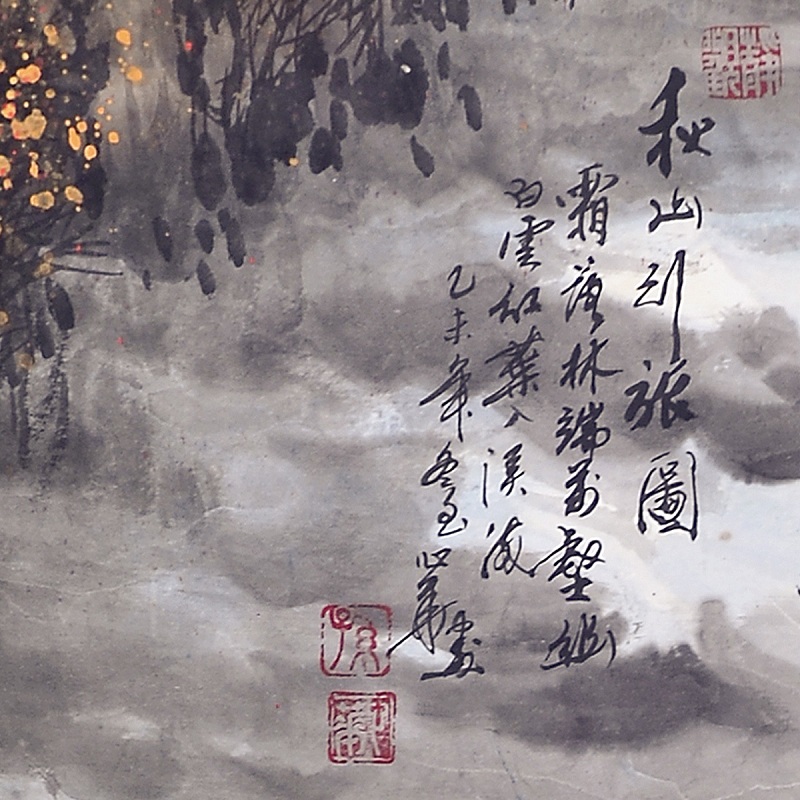 秋山行旅圖
霜落林端萬壑幽
白雲紅葉入溪流
乙未年冬至心華畫